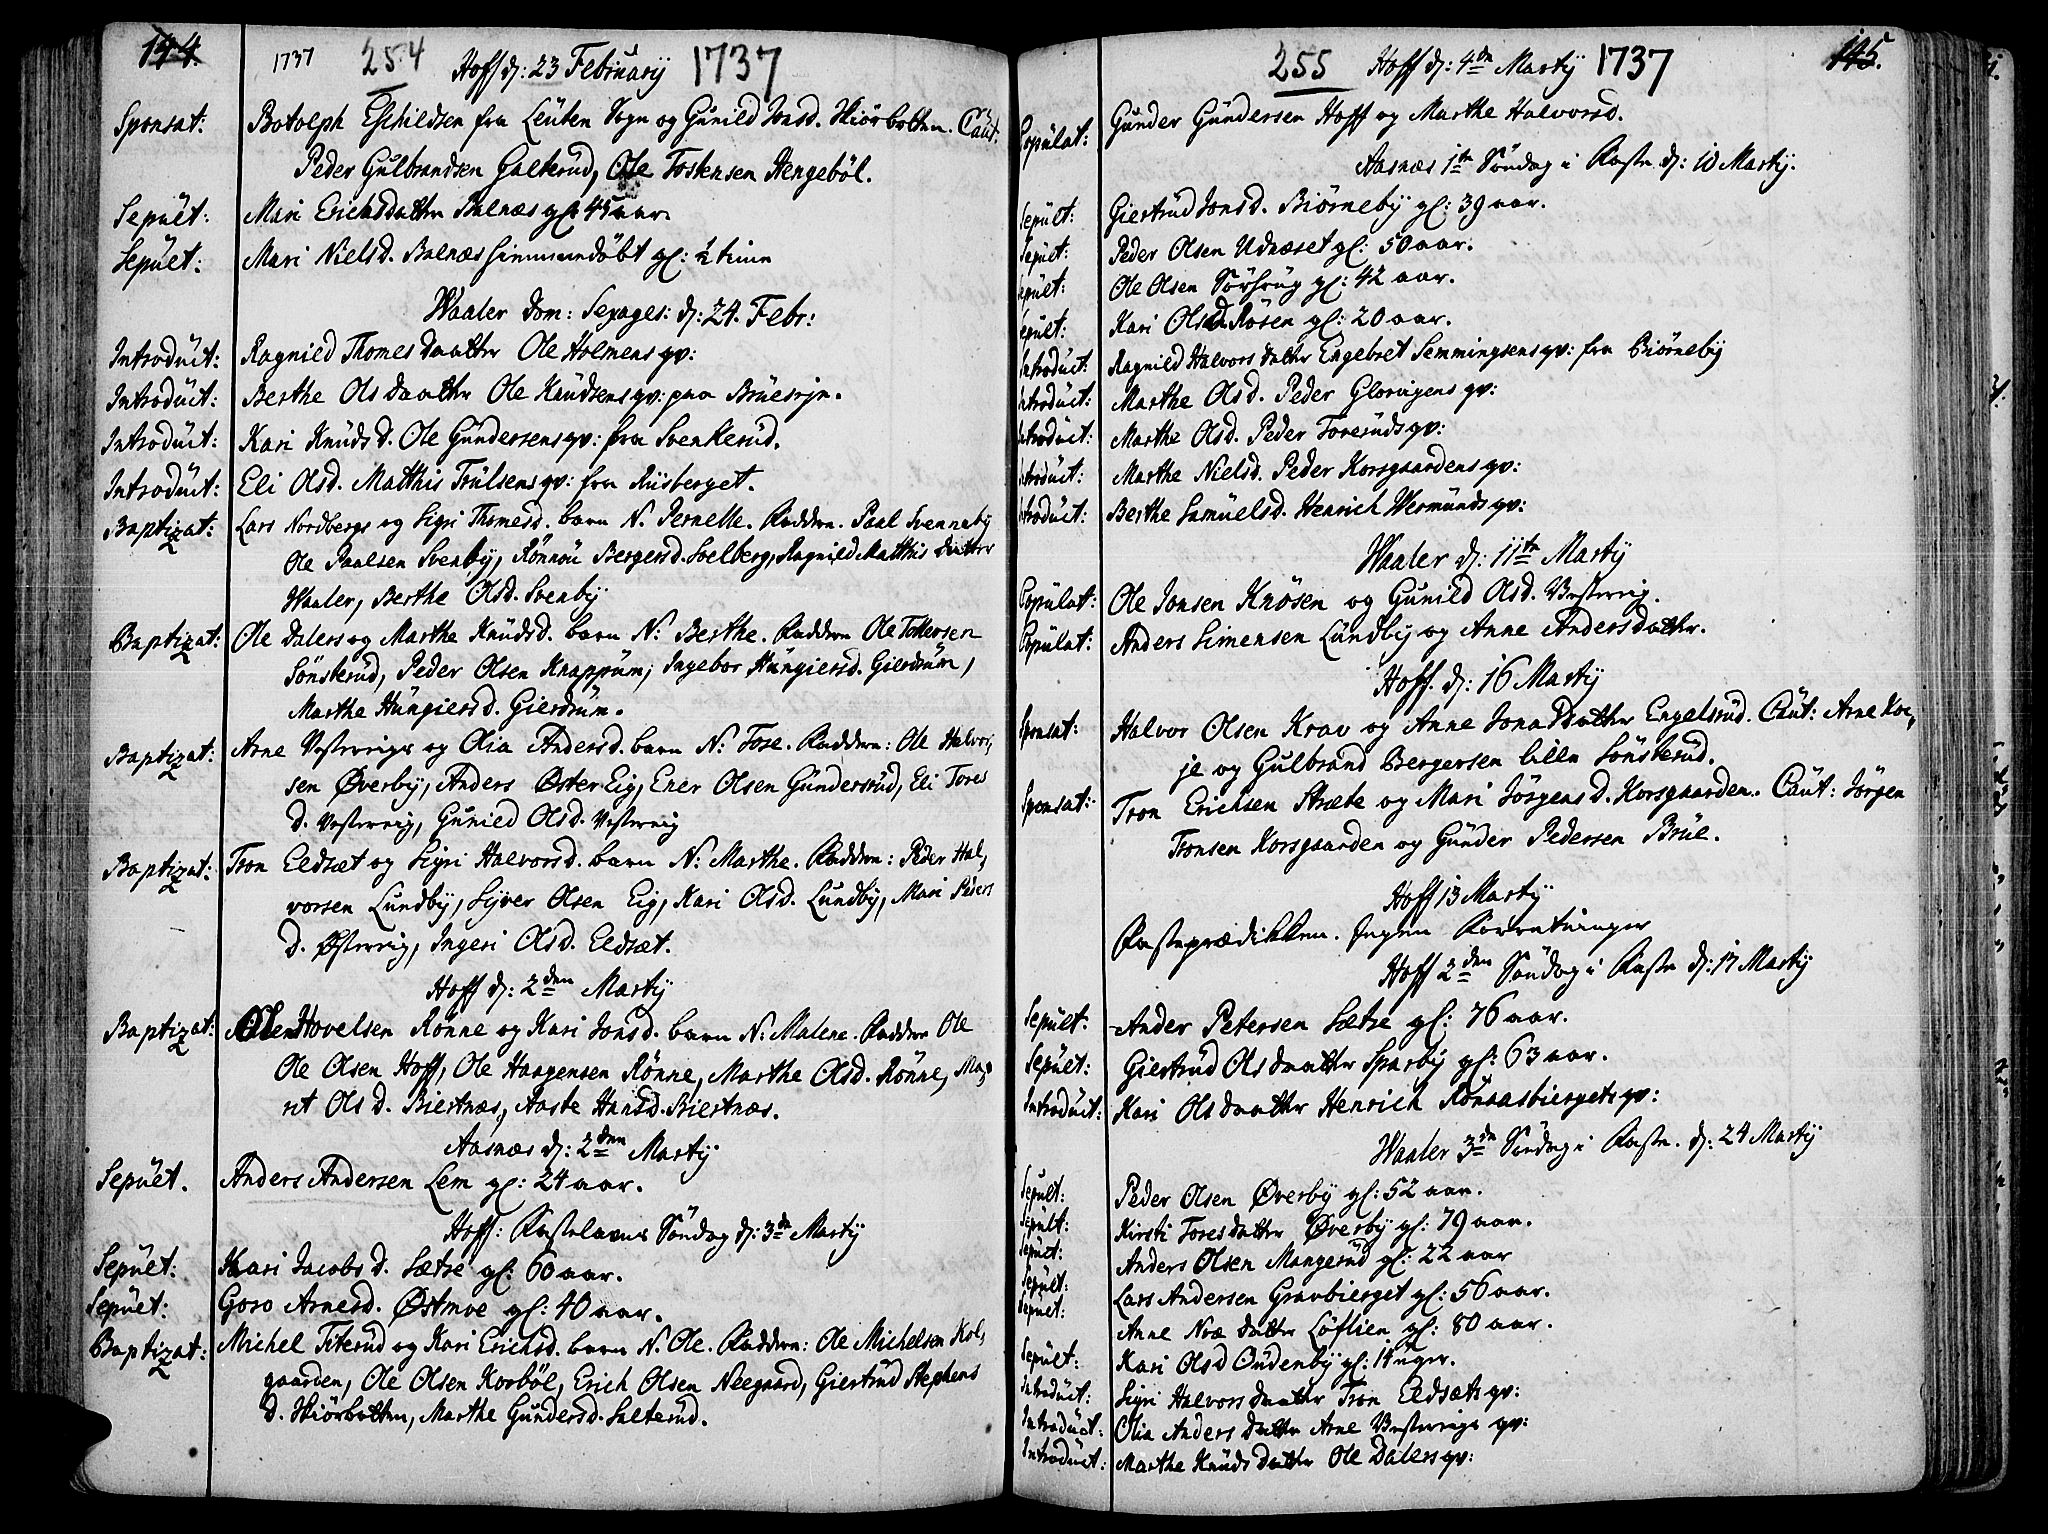 144.
1737 254 Hoff d: 23 February 1737
Sponsat: Botolph Eschildsen fra Leuten Sogn og Gunild Jonsd. Skiörbotten. Caut:
Peder Gulbrandsen Galterud, Ole Tostensen Hengeböl.
Sepult: Mari Erichsdatter Balnæs gl: 45 aar.
Sepult: Mari Nielsd. Balnæs hiemmedöbt gl: ½ time
Waaler Dom: Sexages: d: 24. Febr:
Introduct: Ragnild Thomes daatter Ole Holmens qv:
Introduct: Berthe Olsdaatter Ole Knudsens qv: paa Bruesrjn.
Introduct: Kari Knudsd. Ole Gundersens qv: fra Svenkerud.
Introduct: Eli Olsd. Matthis Trulsens qv: fra Riisberget.
Baptizat: Lars Nordbergs og Sigri Thomesd. barn N. Pernelle. Faddere. Paal Svenneby
Ole Paalsen Svenby, Rönnou Bergersd. Soelberg, Ragnild Matthis datter
Waaler, Berthe Olsd. Svenby
Baptizat: Ole Dalers og Marthe Knudsd. barn N: Berthe. Faddere Ole Tollersen
Sönsterud, Peder Olsen Knappum, Ingebor Hungiersd. Gierdrum,
Marthe Hungiersd. Gierdrum.
Baptizat: Arne Vestereigs og Olia Andersd. barn N: Tore. Faddere: Ole Halvor,
sen Øverby, Anders Øster-Eig, Ener Olsen Gundersrud, Eli Tores
d. Vestereig, Gunied Olsd. Vestereig
Baptizat: Tron Eldsæt og Sigri Halvorsd. barn N: Marthe. Faddere: Peder Hal,
vorsen Lundby, Syver Olsen Eig, Kari Olsd. Lundby, Mari Peders
d. Østereig, Ingeri Olsd. Eldsæt.
Hoff d: 2den Marty
Baptizat: Ole Hovelsen Rönne og Kari Jonsd. barn N: Malene. Faddere Ole
Ole Olsen Hoff, Ole Haagensen Rönne, Marthe Olsd. Rönne, Ma,
rit Olsd. Biertnæs, Aaste Hansd. Biertnæs.
Aasnæs d: 2den Marty
Sepult. Anders Andersen Lem gl: 24 aar.
Hoff: Fastelavns Söndag d: 3de Marty
Sepult: Kari Jacobsd. Sætre gl: 60 aar.
Sepult: Goro Arnesd. Östmoe gl: 40 aar.
Baptizat: Michel Titerud og Kari Erichsd. barn N. Ole. Faddere: Ole Michelsen Kol,
gaarden, Ole Olsen Korböl, Erich Olsen Neegaard, Giertrud Stephens
d. Skiörbotten, Marthe Gundersd. Salterud.
255 Hoff d: 4de Marty 1737 145.
Copulat: Gunder Gundersen Hoff og Marthe Halvorsd.
Aasnæs 1te Söndag i Faste d: 10 Marty.
Sepult: Giertrud Jonsd. Biørneby gl: 39 aar.
Sepult: Peder Olsen Udnæset gl: 50 aar.
Sepult: Ole Olsen Sörhrug gl: 42 aar.
Sepult: Kari Olsd. Rösen gl: 20 aar.
Introduct: Ragnild Halvorsdatter Engebret Semmingsens qv: fra Biørneby
Introduct: Marthe Olsd. Peder Glorvigens qv:
Introduct: Marthe Olsd. Peder Toreruds qv:
Introduct: Marthe Nielsd. Peder Korsgaardens qv:
Introduct: Berthe Samuelsd. Henrich Wermunds qv:
Waaler d: 11te Marty
Copulat: Ole Jonsen Knösen og Gunild Olsd. Vestereig.
Copulat: Anders Simensen Lundby og Anne Andersdatter.
Hoff. d: 16 Marty
Sponsat: Halvor Olsen Krav og Anne Jonasdaatter Engelsrud. Caut: Arne Koe,
je og Gulbrand Bergersen lille Sönsterud.
Sponsat: Tron Erichsen Stræte og Mari Jörgensd. Korsgaarden. Caut: Jörgen
Tronsen Korsgaarden og Gunder Pedersen Brue.
Hoff 13 Marty
Fasteprædikken. Ingen Forretninger
Hoff 2den Söndag i Faste d: 17 Marty
Sepult: Ander Petersen Sætre gl: 76 aar.
Sepult: Giertrud Olsdaatter Sparby gl: 63 aar.
Introduct: Kari Olsdaatter Henrich Rönaasbiergets qv:
Waaler 3de Söndag i Faste. d: 24 Marty
Sepult: Peder Olsen Øverby gl: 52 aar.
Sepult: Kirsti Toresdatter Øverby gl: 79 aar.
Sepult: Anders Olsen Mangerud gl: 22 aar
Sepult: Lars Andersen Gravbierget gl: 56 aar.
Sepult: Anne datter Löflien gl: 80 aar.
Sepult: Kari Olsd Oudenby gl: 14 uger.
Introduct: Sigri Halvorsdaatter Tron Eldsæts qv:
Introduct: Olia Andersdatter Arne Vestereigs qv:
Introduct: Marthe Knudsdatter Ole Dalers qv: